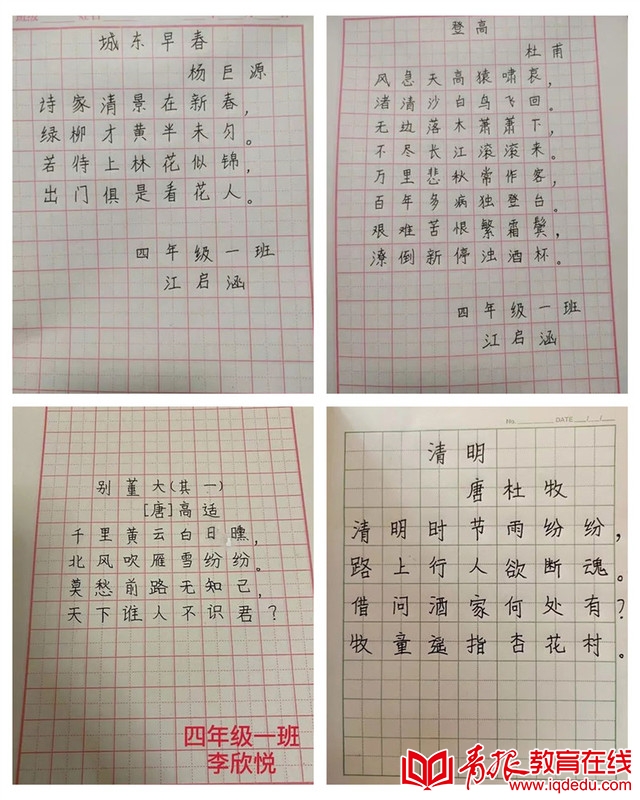 城东早春
杨巨源
诗家清景在新春，
绿柳才黄半未匀。
若待上林花似锦，
出门俱是看花人。
四年级一班
江启涵
登高
杜甫
风急天高猿啸哀，
渚清沙白鸟飞回。
无边落木萧萧下，
不尽长江滚滚来。
万里悲秋常作客，
百年多病独登台。
艰难苦恨繁霜鬓，
潦倒新停浊酒杯。
四年级一班
江启涵
别董大(其一)
[唐]高适
千里黄云白日曛，
北风吹雁雪纷纷。
莫愁前路无知己，
天下谁人不识君？
四年级一班
李欣悦
No. DATE / /
清明
唐杜牧
清明时节雨纷纷，
路上行人欲断魂。
借问酒家何处有？
牧童遥指杏花村。
青报教育在线
www.iqdedu.com